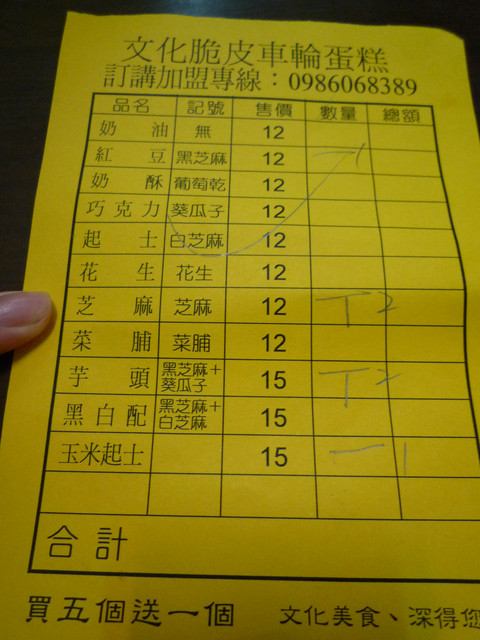 文化脆皮車輪蛋糕
訂講加盟專線：0986068389
品名 記號 售價 數量 總額
奶油 無 12
紅豆 黑芝麻 12 一 1
奶酥 葡萄乾 12
巧克力 葵瓜子 12
起士 白芝麻 12
花生 花生 12
芝麻 芝麻 12 T 2
菜脯 菜脯 12
芋頭 黑芝麻+葵瓜子 15 T 2
黑白配 黑芝麻+白芝麻 15
玉米起士 15 一 1
合計
買五個送一個 文化美食、深得您